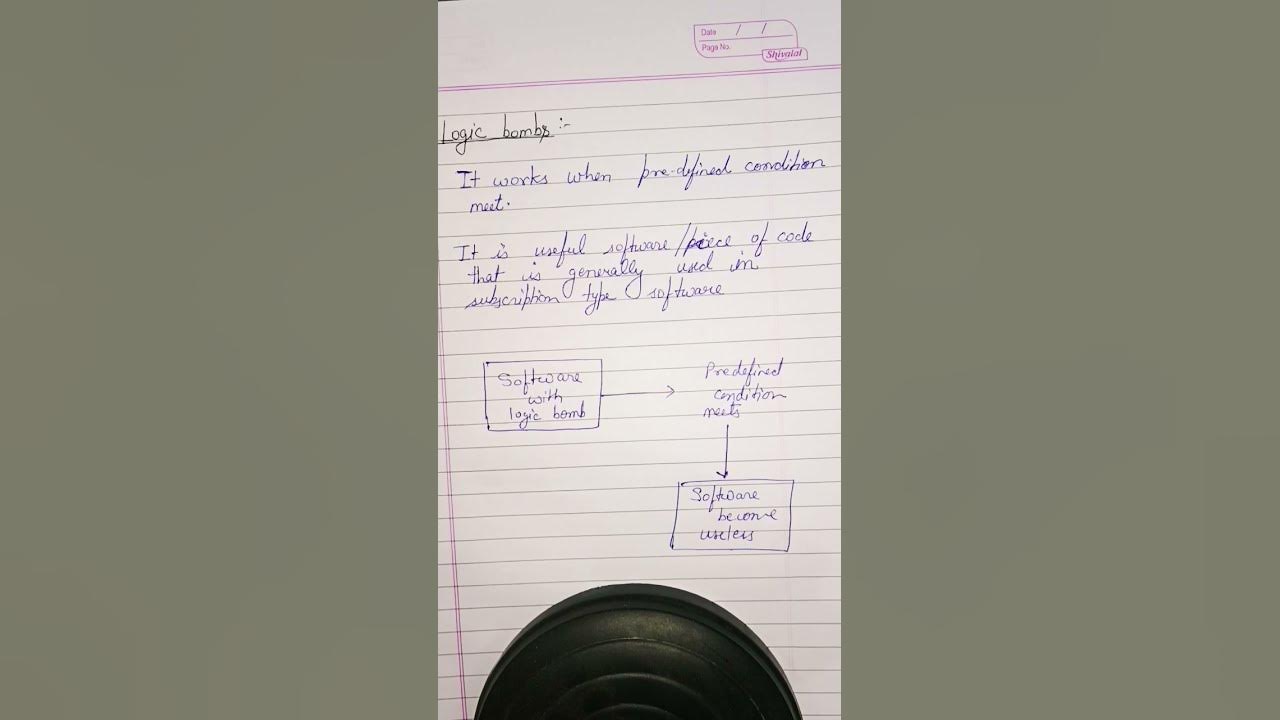 Date / /
Page No.
Shivalal
Logic bombs :-
It works when pre-defined condition
meet.
It is useful software/piece of code
that is generally used in
subscription type software
Software
with
logic bomb
Predefined
condition
meets
Software
become
useless